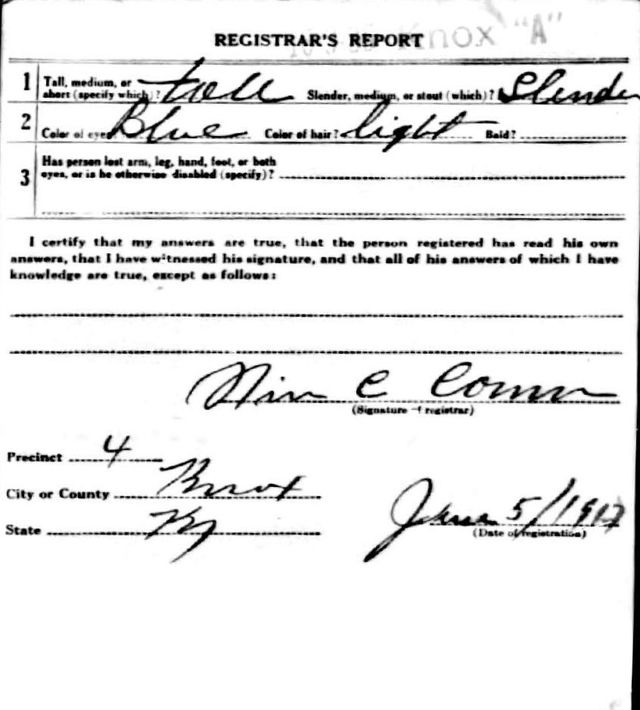 Knox "A"
REGISTRAR'S REPORT
1 Tall, medium, or short (specify which)? tall Slender, medium, or stout (which)? Slender
2 Color of eyes Blue Color of hair? light Bald?
3 Has person lost arm, leg, hand, foot, or both
eyes, or is he otherwise disabled (specify)?
I certify that my answers are true, that the person registered has read his own
answers, that I have witnessed his signature, and that all of his answers of which I have
knowledge are true, except as follows:
C
(Signature of registrar)
Precinct 4
City or County Knox
State Ky
June 5/1917
(Date of registration)